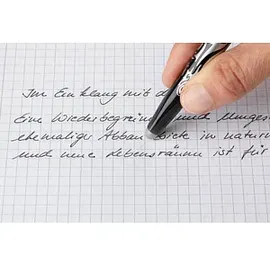 Im Einklang mit d
Eine Wiederbegrein und
ehemaliger Abbau in nature
und neue Lebensräume ist für